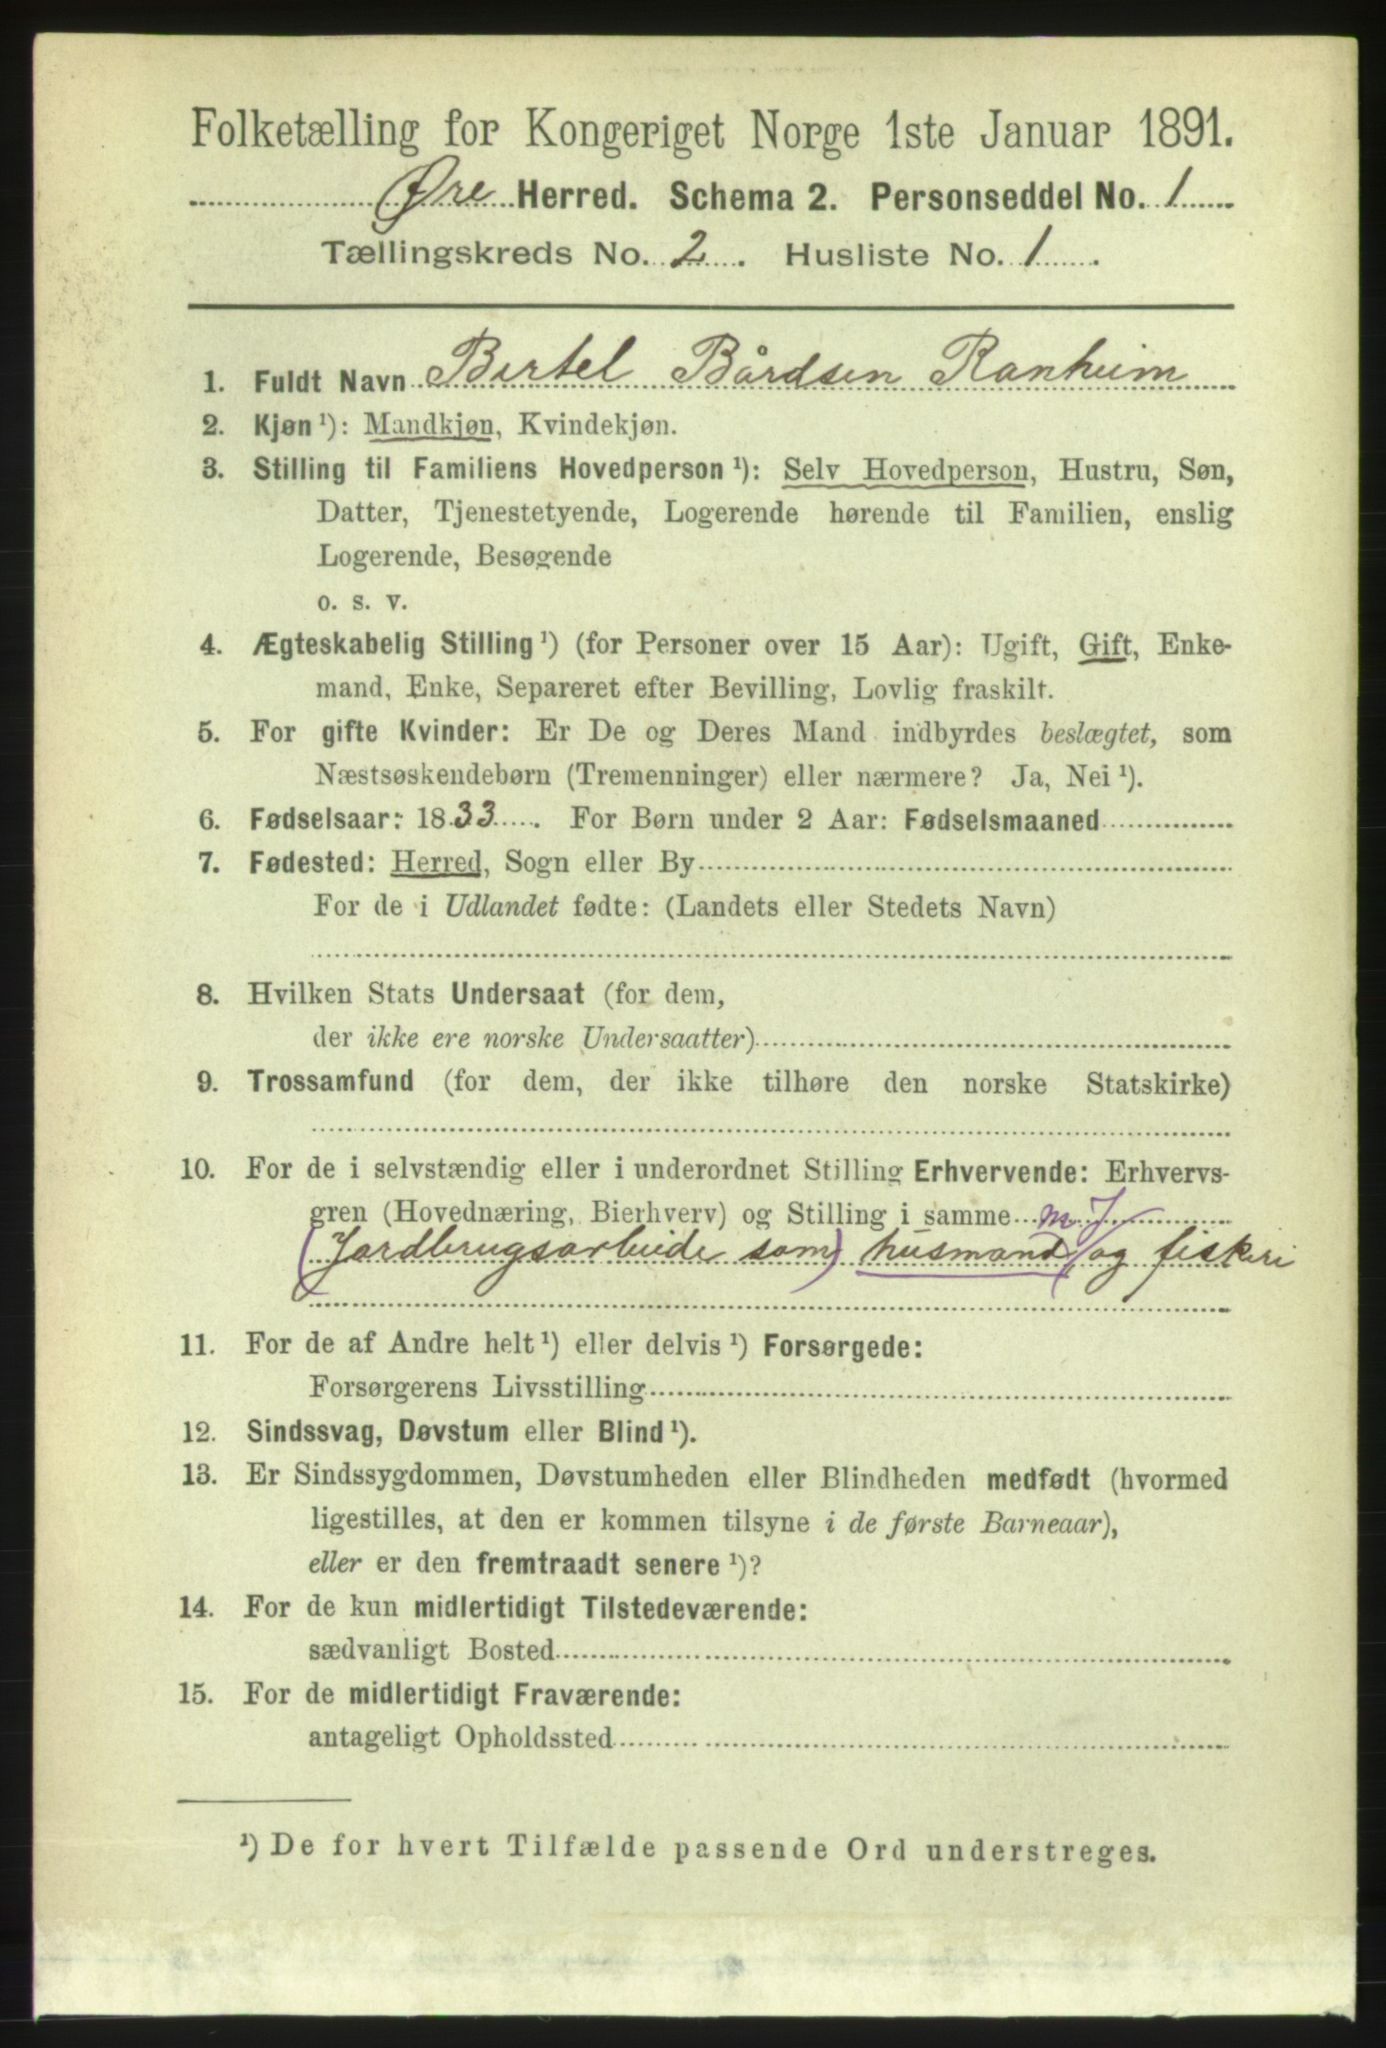 Folketælling for Kongeriget Norge 1ste Januar 1891.
Øre Herred. Schema 2. Personseddel No. 1
Tællingskreds No. 2. Husliste No. 1.
1. Fuldt Navn Bertel Bårdsen Ranheim
2. Kjøn ¹): Mandkjøn, Kvindekjøn.
3. Stilling til Familiens Hovedperson ¹): Selv Hovedperson, Hustru, Søn,
Datter, Tjenestetyende, Logerende hørende til Familien, enslig
Logerende, Besøgende
o. s. v.
4. Ægteskabelig Stilling ¹) (for Personer over 15 Aar): Ugift, Gift, Enke-
mand, Enke, Separeret efter Bevilling, Lovlig fraskilt.
5. For gifte Kvinder: Er De og Deres Mand indbyrdes beslægtet, som
Næstsøskendebørn (Tremenninger) eller nærmere? Ja, Nei ¹).
6. Fødselsaar: 1833. For Børn under 2 Aar: Fødselsmaaned
7. Fødested: Herred, Sogn eller By
For de i Udlandet fødte: (Landets eller Stedets Navn)
8. Hvilken Stats Undersaat (for dem,
der ikke ere norske Undersaatter)
9. Trossamfund (for dem, der ikke tilhøre den norske Statskirke)
10. For de i selvstændig eller i underordnet Stilling Erhvervende: Erhvervs-
gren (Hovednæring, Bierhverv) og Stilling i samme m. J
(Jordbrugsarbeide som) husmand, og fiskeri
11. For de af Andre helt ¹) eller delvis ¹) Forsørgede:
Forsørgerens Livsstilling
12. Sindssvag, Døvstum eller Blind ¹).
13. Er Sindssygdommen, Døvstumheden eller Blindheden medfødt (hvormed
ligestilles, at den er kommen tilsyne i de første Barneaar),
eller er den fremtraadt senere ¹)?
14. For de kun midlertidigt Tilstedeværende:
sædvanligt Bosted
15. For de midlertidigt Fraværende:
antageligt Opholdssted
¹) De for hvert Tilfælde passende Ord understreges.